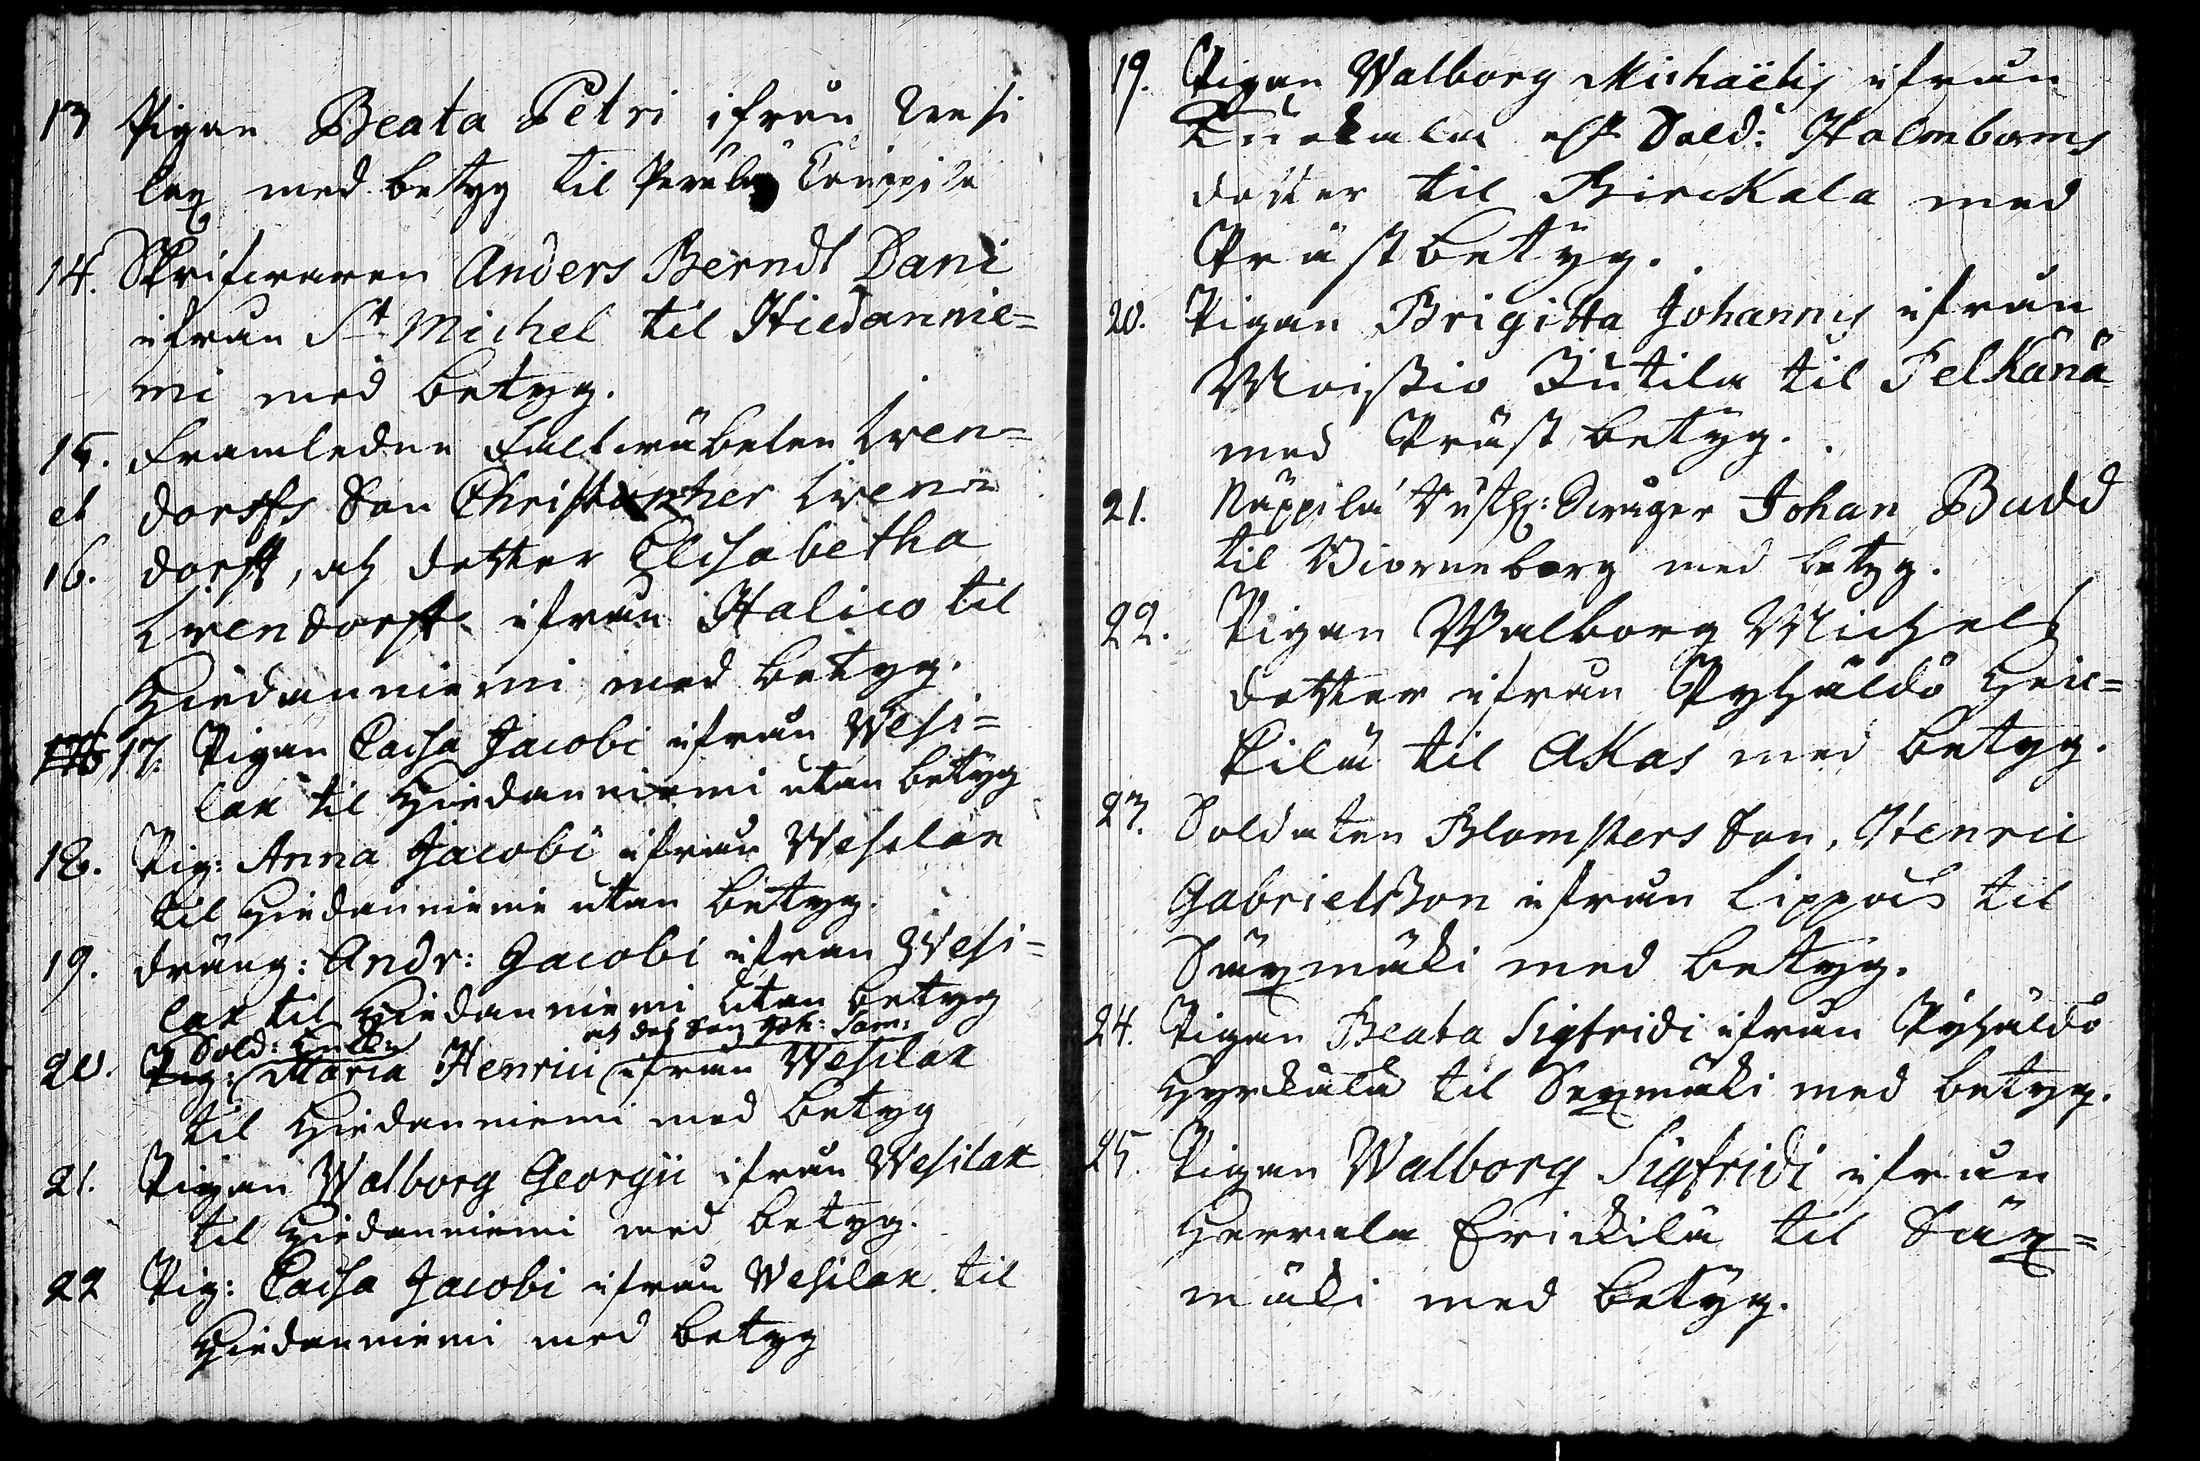 13 Pigan Beata Petri ifrån Wesi
lax med betyg til Perälä
14. Skrifwaren Anders Berndt Dani
ifrån St Michel til Hiedannie=
mi med betyg.
15. Framledne Fältwäbelen Lwen=
et dorffs Son Christopher Lwen=
16. dorff, och dotter Elisabetha
Lwendorff ifrån Halico til
Hiedanniemi med betyg.
17. Pigan Caisa Jacobi ifrån Wesi=
lax til Hiedanniemi utan betyg
18. Pig: Anna Jacobi ifrån Wesilax
til Hiedanniemi utan betyg.
19. dräng: Andr: Jacobi ifrån Wesi=
lax til Hiedanniemi utan betyg
Sold: Enk: och des Son Joh: Sam:
20. Pig: Maria Henrici ifrån Wesilax
til Hiedanniemi med betyg
21. Pigan Walborg Georgii ifrån Wesilax
til Hiedanniemi med betyg.
22 Pig: Caisa Jacobi ifrån Wesilax til
Hiedanniemi med betyg
19. Pigan Walborg Michaëlis ifrån
Sold: Holmboms
dotter til Birckala med
Präst betyg.
20. Pigan Brigitta Johannis ifrån
Moisio Jutila til Pelkänä
med Präst betyg.
21. Näppilä Johan Budd
til Biörneborg med betyg.
22. Pigan Walborg Michels
dotter ifrån Pyhäldö Hei=
kilä til Akas med betyg.
23. Soldaten Blomsters Son, Henric
Gabrielsson ifrån Lippois til
Säxmäki med betyg.
24. Pigan Beata Sigfridi ifrån Pyhäldö
Hyrkälä til Sexmäki med betyg.
25. Pigan Walborg Sigfridi ifrån
Herrala Erickilä til Säx=
mäki med betyg.